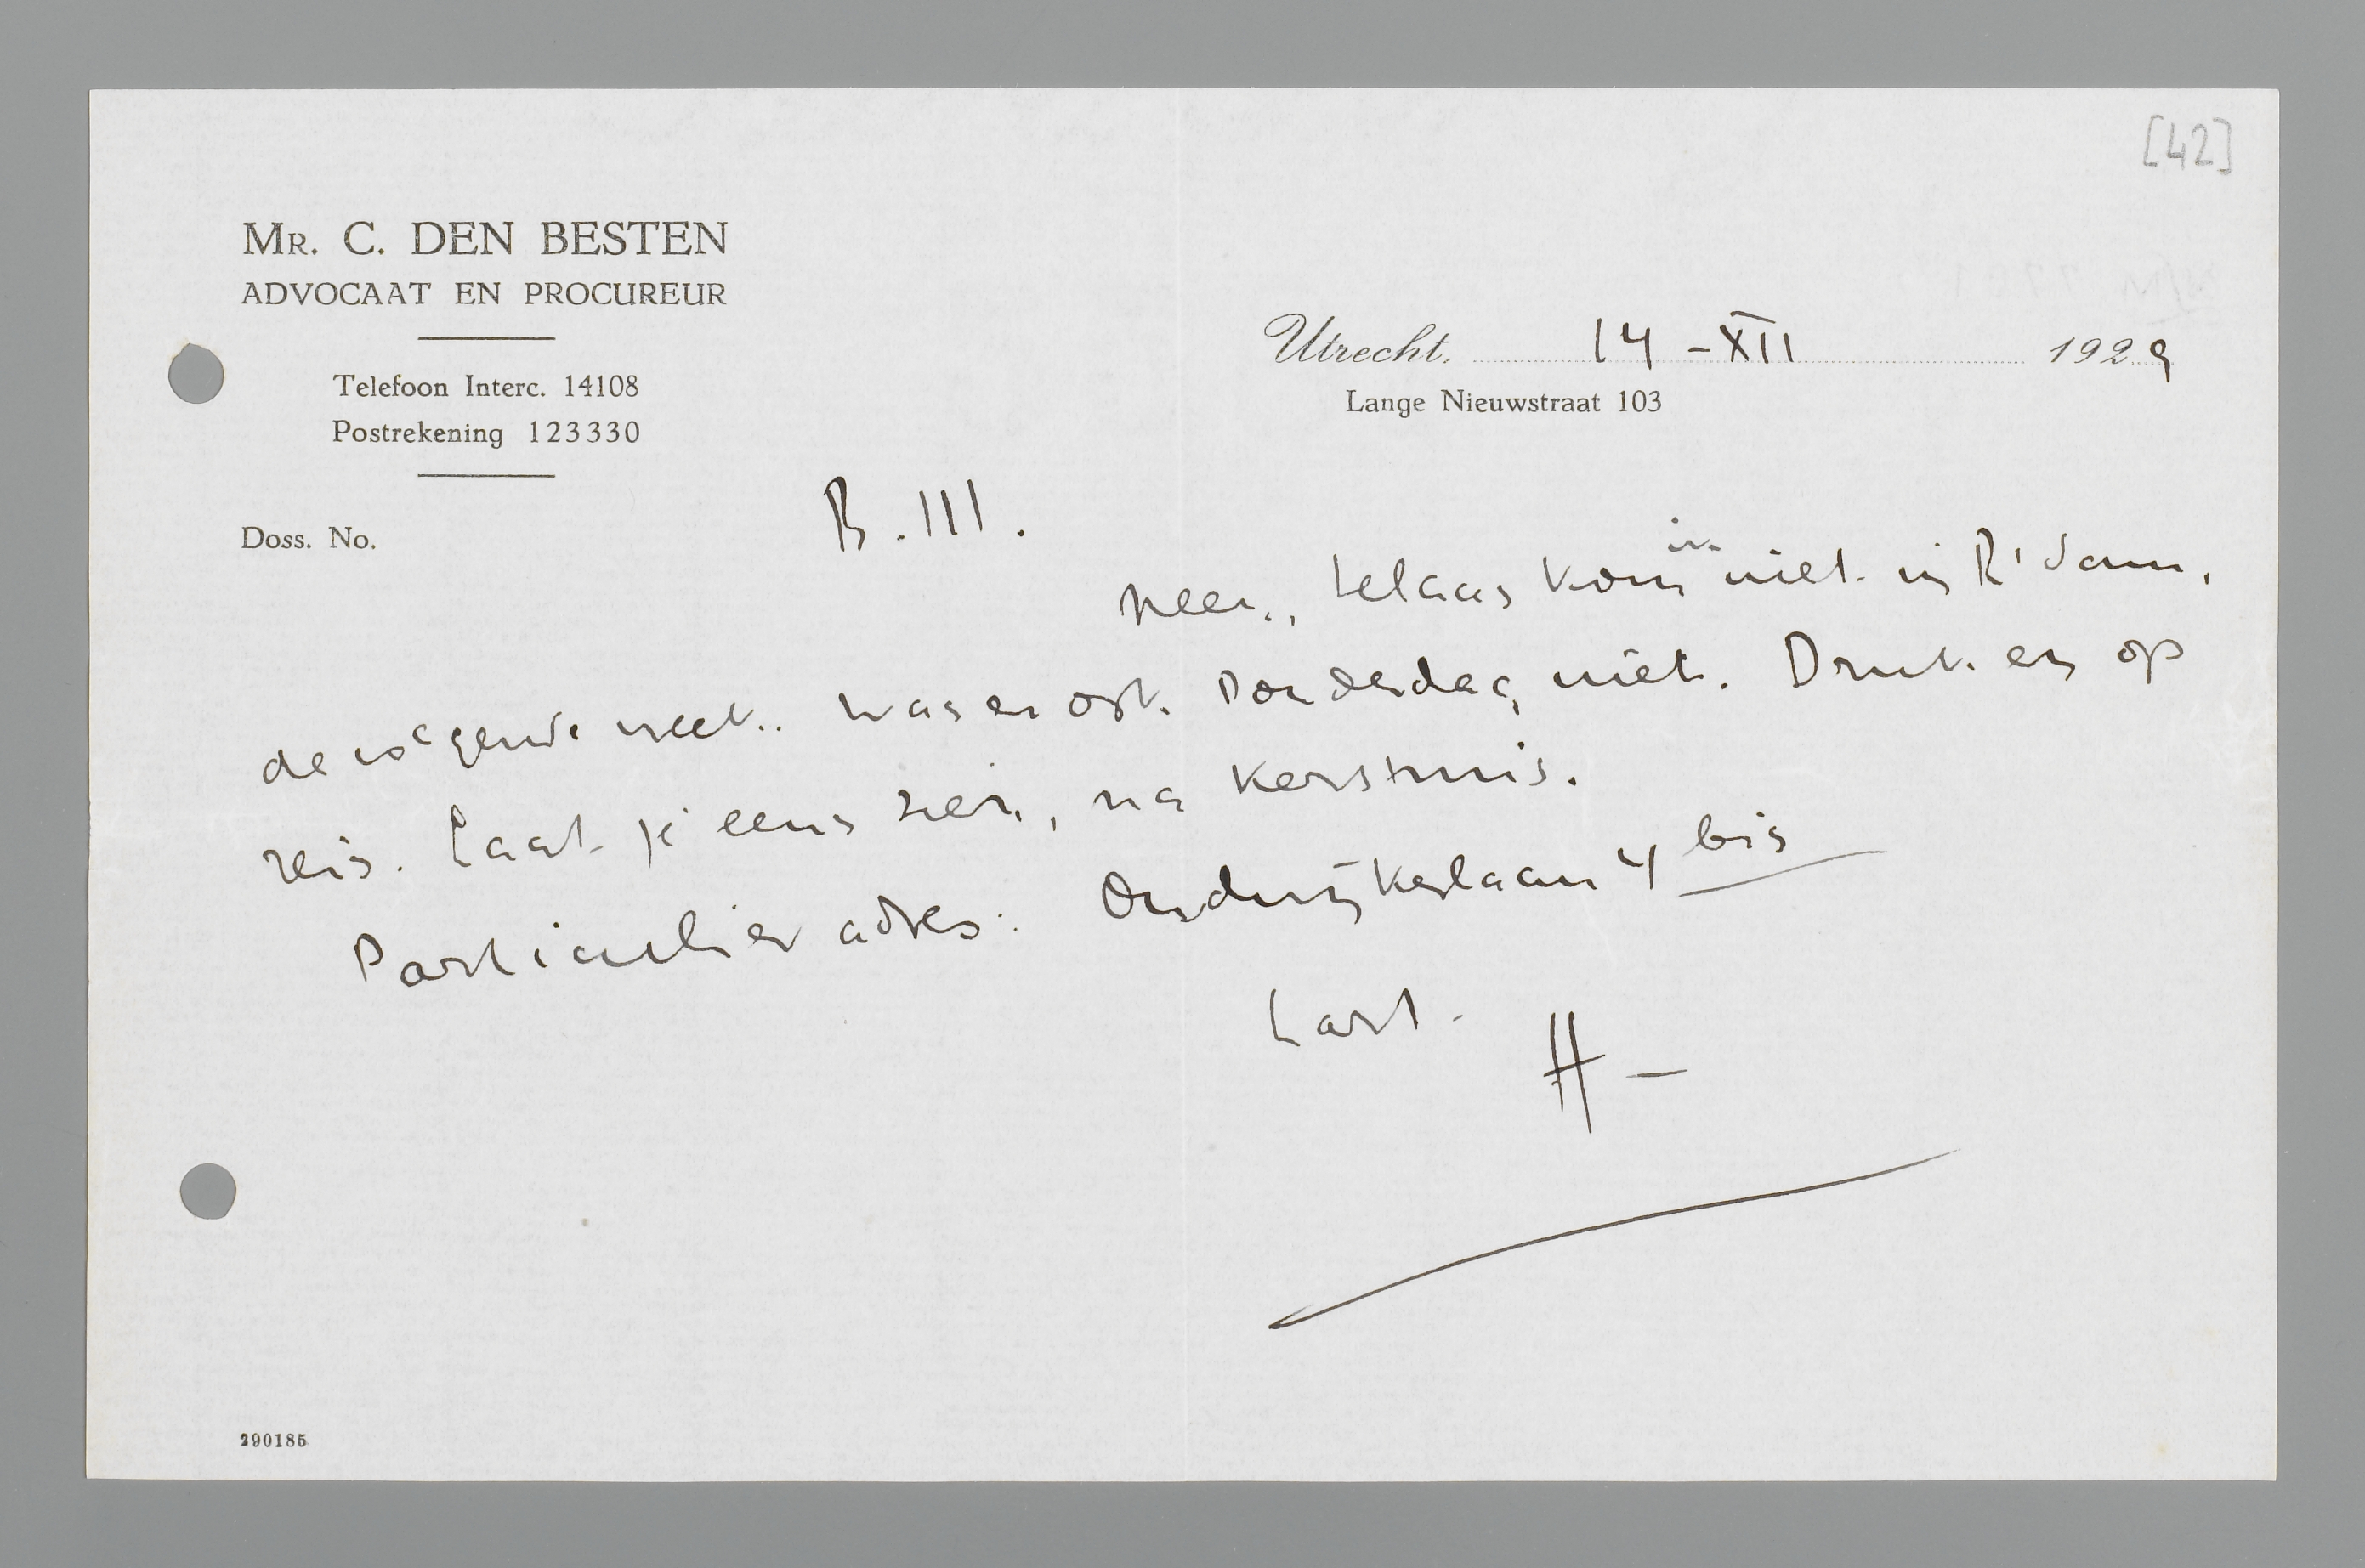 [42]
MR. C. DEN BESTEN
ADVOCAAT EN PROCUREUR
Telefoon Interc. 14108
Postrekening 123330
Utrecht, 14 - XII 1929
Lange Nieuwstraat 103
Doss. No.
B. III.
Neen, helaas kom ik niet in R'dam,
de volgende week. Was er ook Donderdag niet. Druk en op
reis. Laat je eens zien, na Kerstmis.
Particulier adres: Oudwijkerlaan 4 bis
Hart.
H-
290185